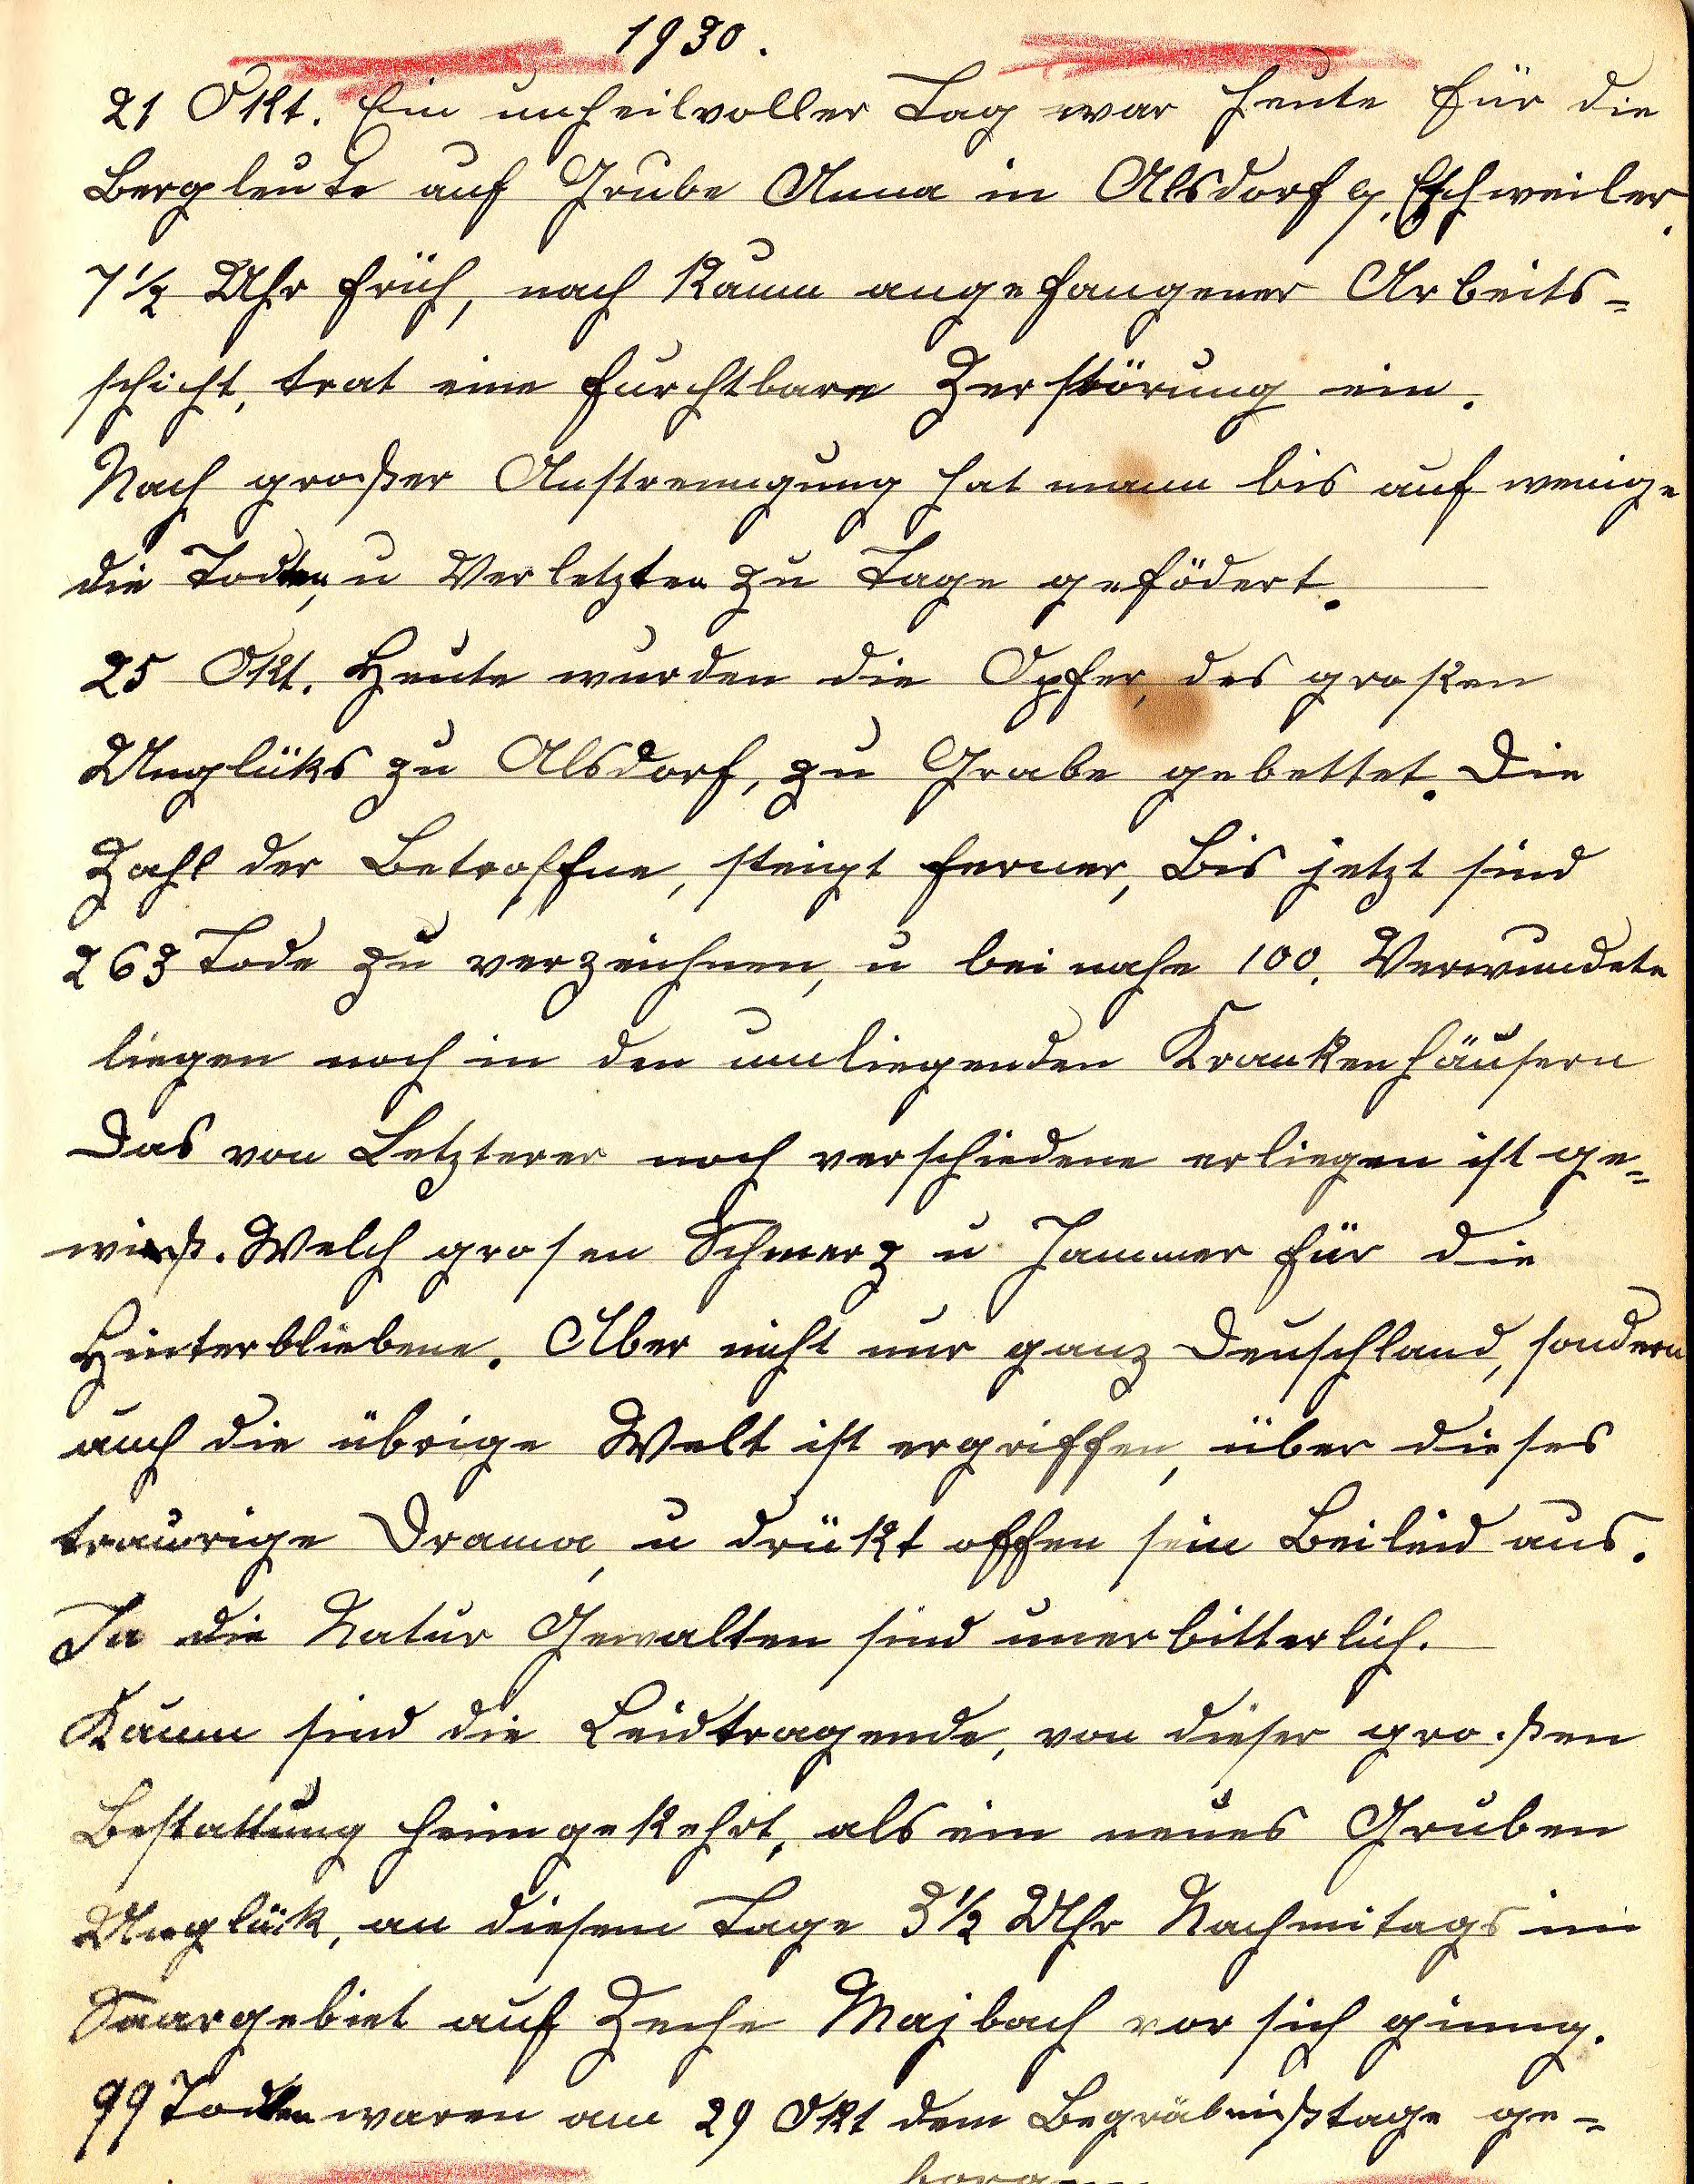 1930.
21 Okt. Ein unheilvoller Tag war heute für die
Bergleute auf Grube Anna in Alsdorf b. Eschweiler.
7½ Uhr früh, nach kaum angefangener Arbeits-
schicht, trat eine furchtbare Zerstörung ein.
Nach großer Anstrenngung hat mann bis auf wenige
die Todten, u Verletzten zu Tage gefödert.
25 Okt. Heute wurden die Opfer, des großen
Unglüks zu Alsdorf, zu Grabe gebettet. Die
Zahl der Betroffne, steigt ferner, Bis jetzt sind
263 Tode zu verzeichnen, u bei nahe 100. Verwundete
liegen noch in den umliegenden Krankenhäusern
Das von Letzterer noch verschiedene erliegen ist ge-
wiß. Welch grosen Schmerz u Jammer für die
Hinterbliebene. Aber nicht nur ganz Deuschland, sondern
auch die übrige Welt ist ergriffen, über dieses
traurige Drama, u drükt offen sein Beileid aus.
Ja die Natur Gewalten sind unerbitterlich.
Kaum sind die Leidtragende, von dieser großen
Bestattung heimgekehrt, als ein neues Gruben
Unglük, an diesem Tage 3½ Uhr Nachmitags im
Saargebiet auf Zeche Majbach vor sich ginng.
99 Todten waren am 29 Okt dem Begräbnißtage ge-
borgen